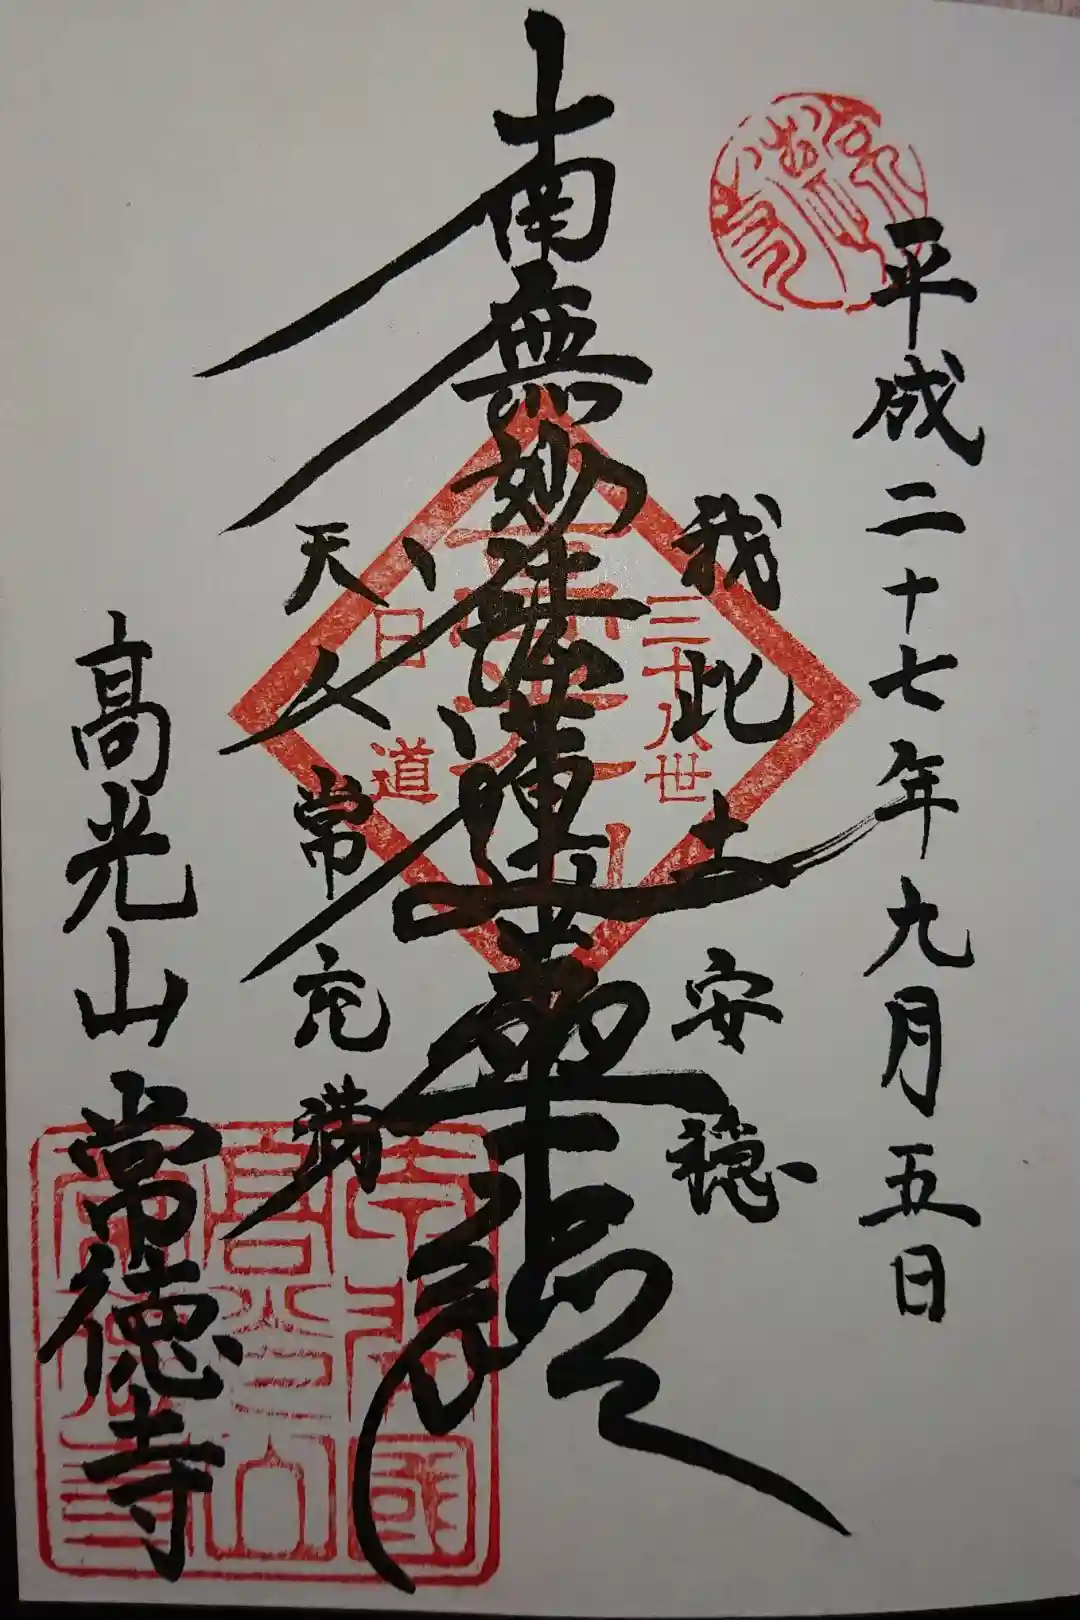 平成二十七年九月五日
我此土安穏
南無妙法蓮華経
天人常充満
高光山常徳寺
三十八世
日道